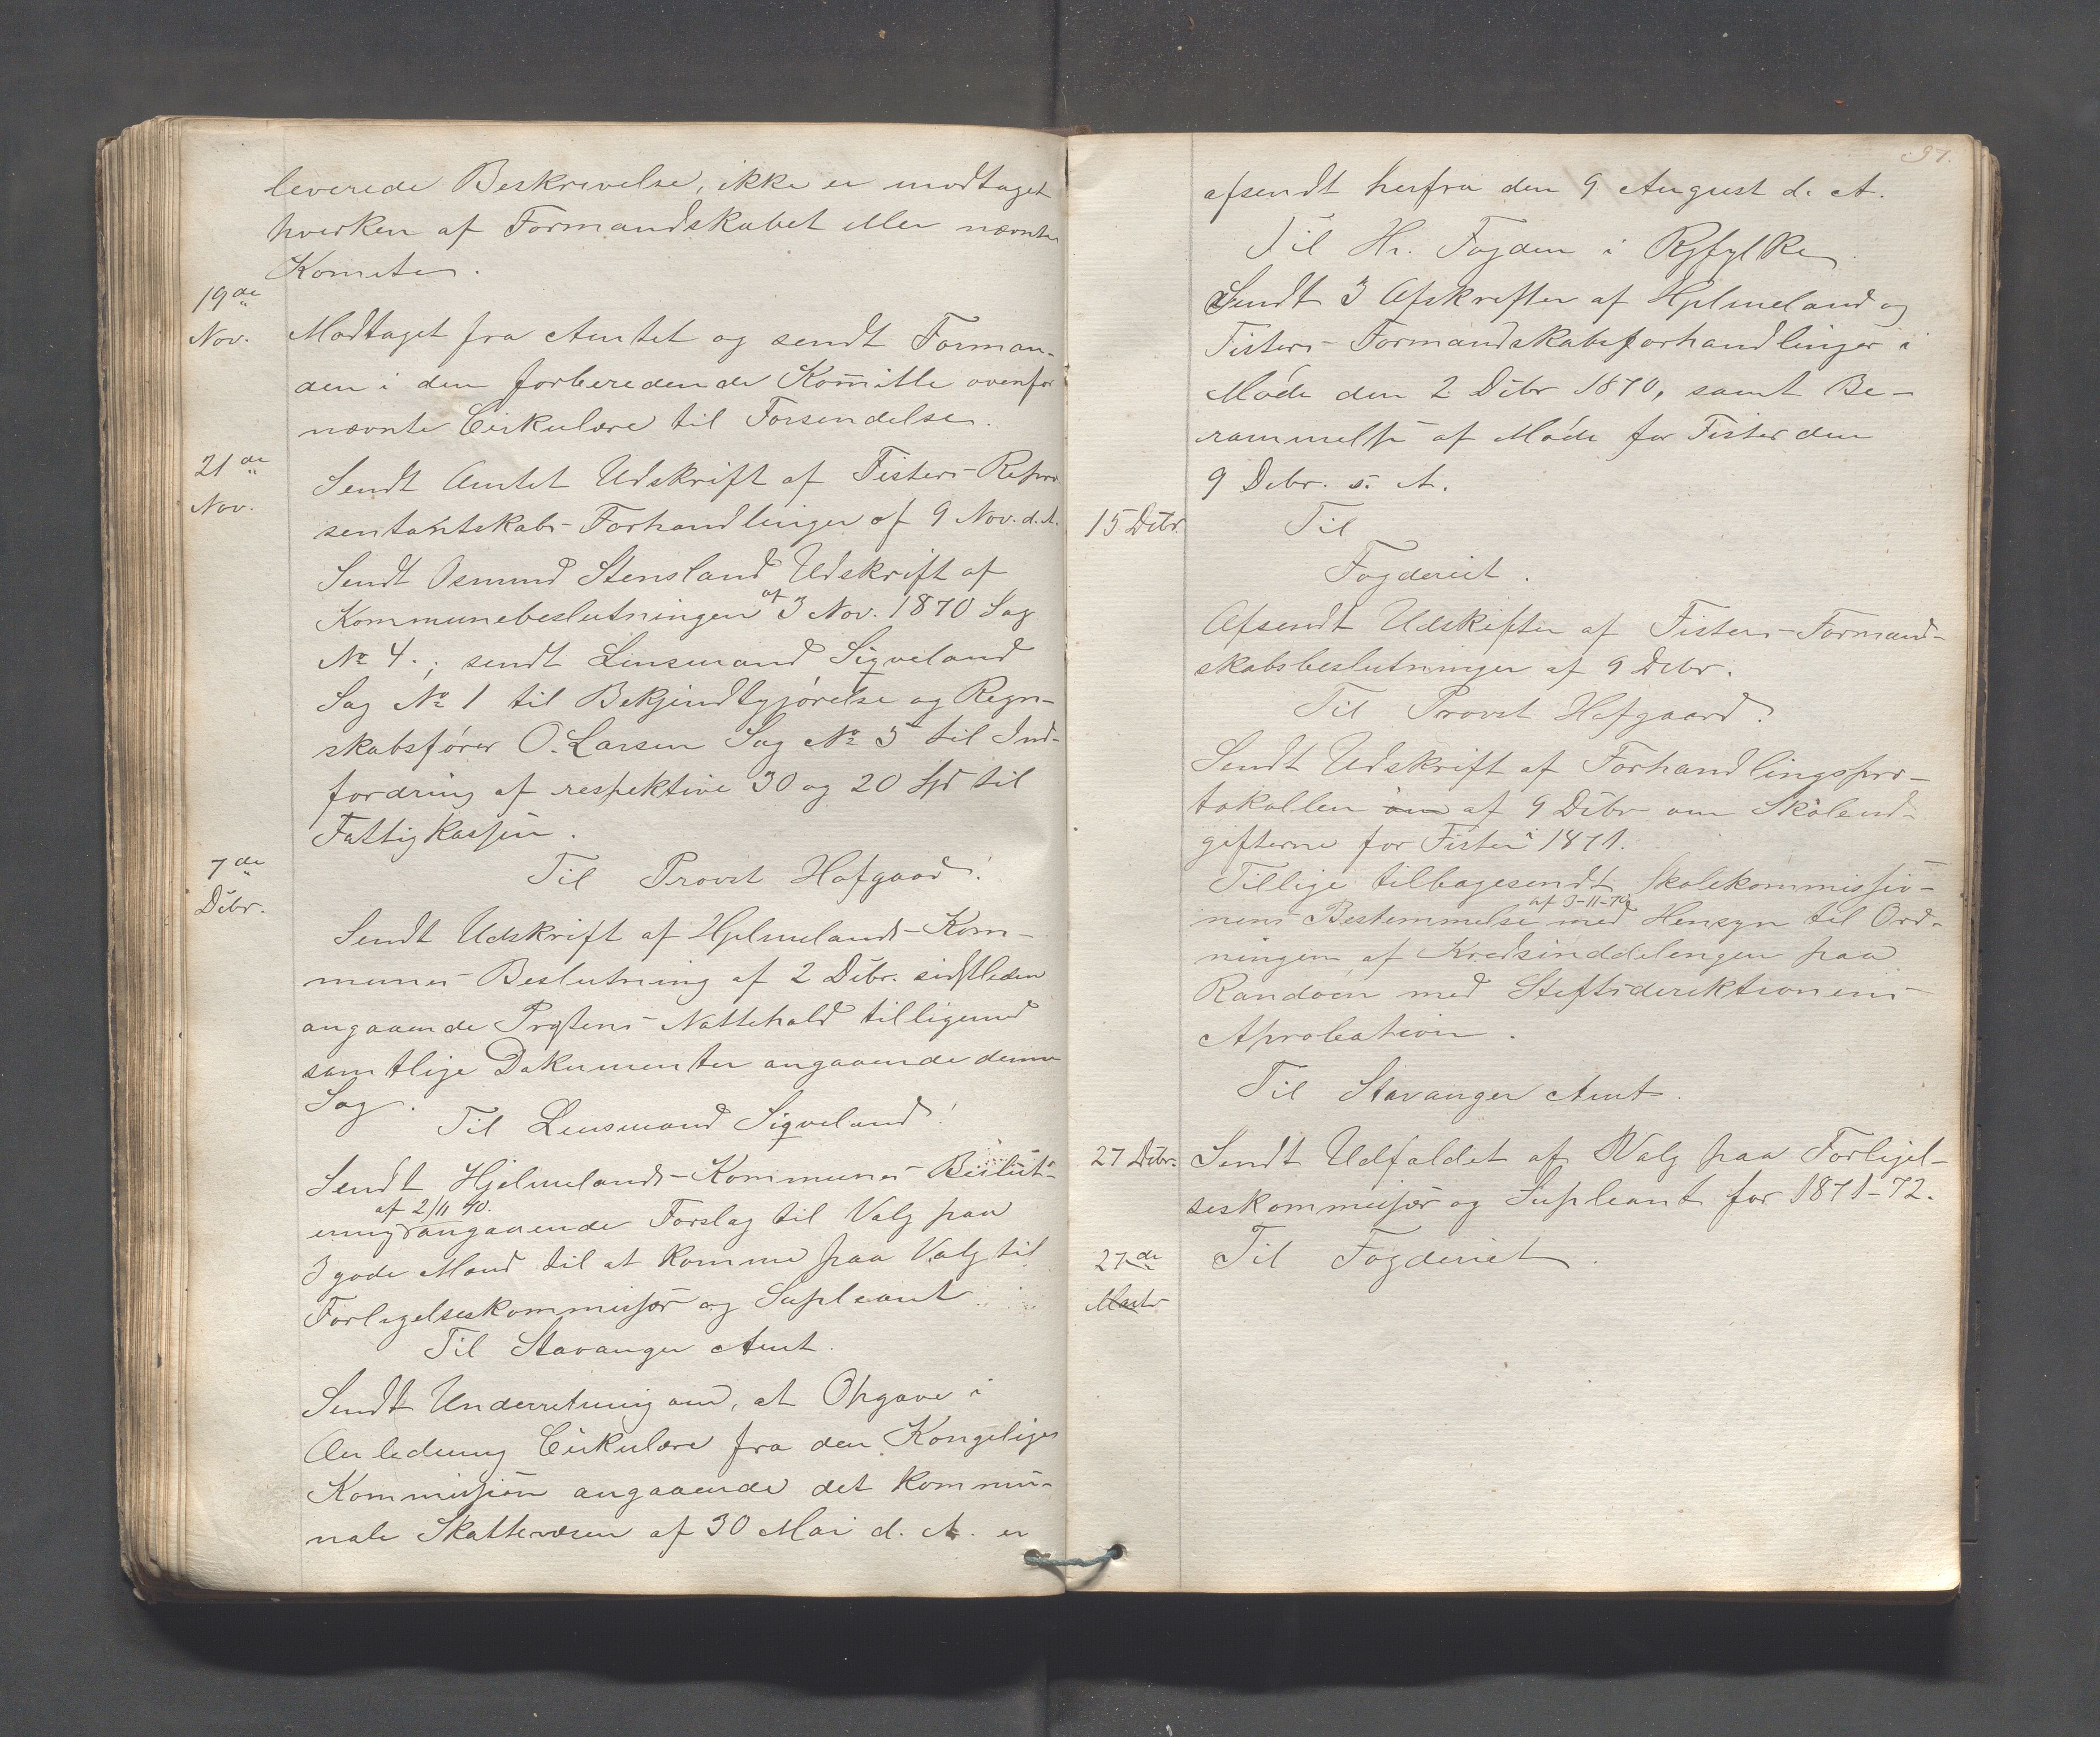 leverede Beskrivelse, ikke er modtaget
hverken af Formandskabet eller nævnte
Komite.
19de
Nov. Modtaget fra Amtet og sendt Forman-
den i den forberedende Komitte ovenfor
nævnte Cirkulære til Forsendelse.
21de
Nov. Sendt Amtet Udskrift af Fisters-Repræ
sentantskabs-Forhandlinger af 9 Nov. d. A.
Sendt Osmund Stensland Udskrift af
Kommunebeslutningen af 3 Nov. 1870 Sag
No 4.; sendt Linsmand Sigveland
Sag No 1 til Bekjendtgjørelse og Regn-
skabsfører O. Larsen Sag No 5 til Ind-
fordring af respektive 30 og 20 Spd til
Fattigkassen.
7de
Dcbr. Til Provst Hofgaard!
Sendt Udskrift af Hjelmelands-Kom-
munes Beslutning af 2 Dcbr. sidstleden
angaaende Præstens Nattehold tilligemed
samtlige Dokumenter angaaende denne
Sag.
Til Lensmand Sigveland!
Sendt Hjelmelands-Kommunes Beslut-
ning af 2/11 70. angaaende Forslag til Valg paa
3 gode Mænd til at komme paa Valg til
Forligelseskommissær og Supleant.
Til Stavanger Amt.
Sendt Underretning om, at Opgave i
Anledning Cirkulære fra den Kongelige
Kommission angaaende det kommu-
nale Skattevæsen af 30 Mai d. A. er
97.
afsendt herfra den 9 August d. A.
Til Hr. Fogden i Ryfylke
Sendt 3 Afskrifter af Hjelmeland og
Fisters-Formandskabsforhandlinger i
Møde den 2 Dcbr 1870, samt Be-
rammelse af Møde for Fister den
9 Dcbr. s. A.
15 Dcbr. Til
Fogderiet.
Afsendt Udskifter af Fisters-Formand-
skabsbeslutninger af 9 Dcbr.
Til Provst Hofgaard.
Sendt Udskrift af Forhandlingspro-
tokollen om af 9 Dcbr om Skolend-
gifterne for Fister i 1871.
Tillige tilbagesendt Skolekommissio-
nens Bestemmelse af 3-11-70 med Hensyn til Ord-
ningen af Kredsinddelengen paa
Randøen med Stiftsdirektionens
Aprobation.
Til Stavanger Amt.
27 Dcbr. Sendt Udfaldet af Valg paa Forligel-
seskommissær og Supleant for 1871-72.
27de Til Fogderiet.